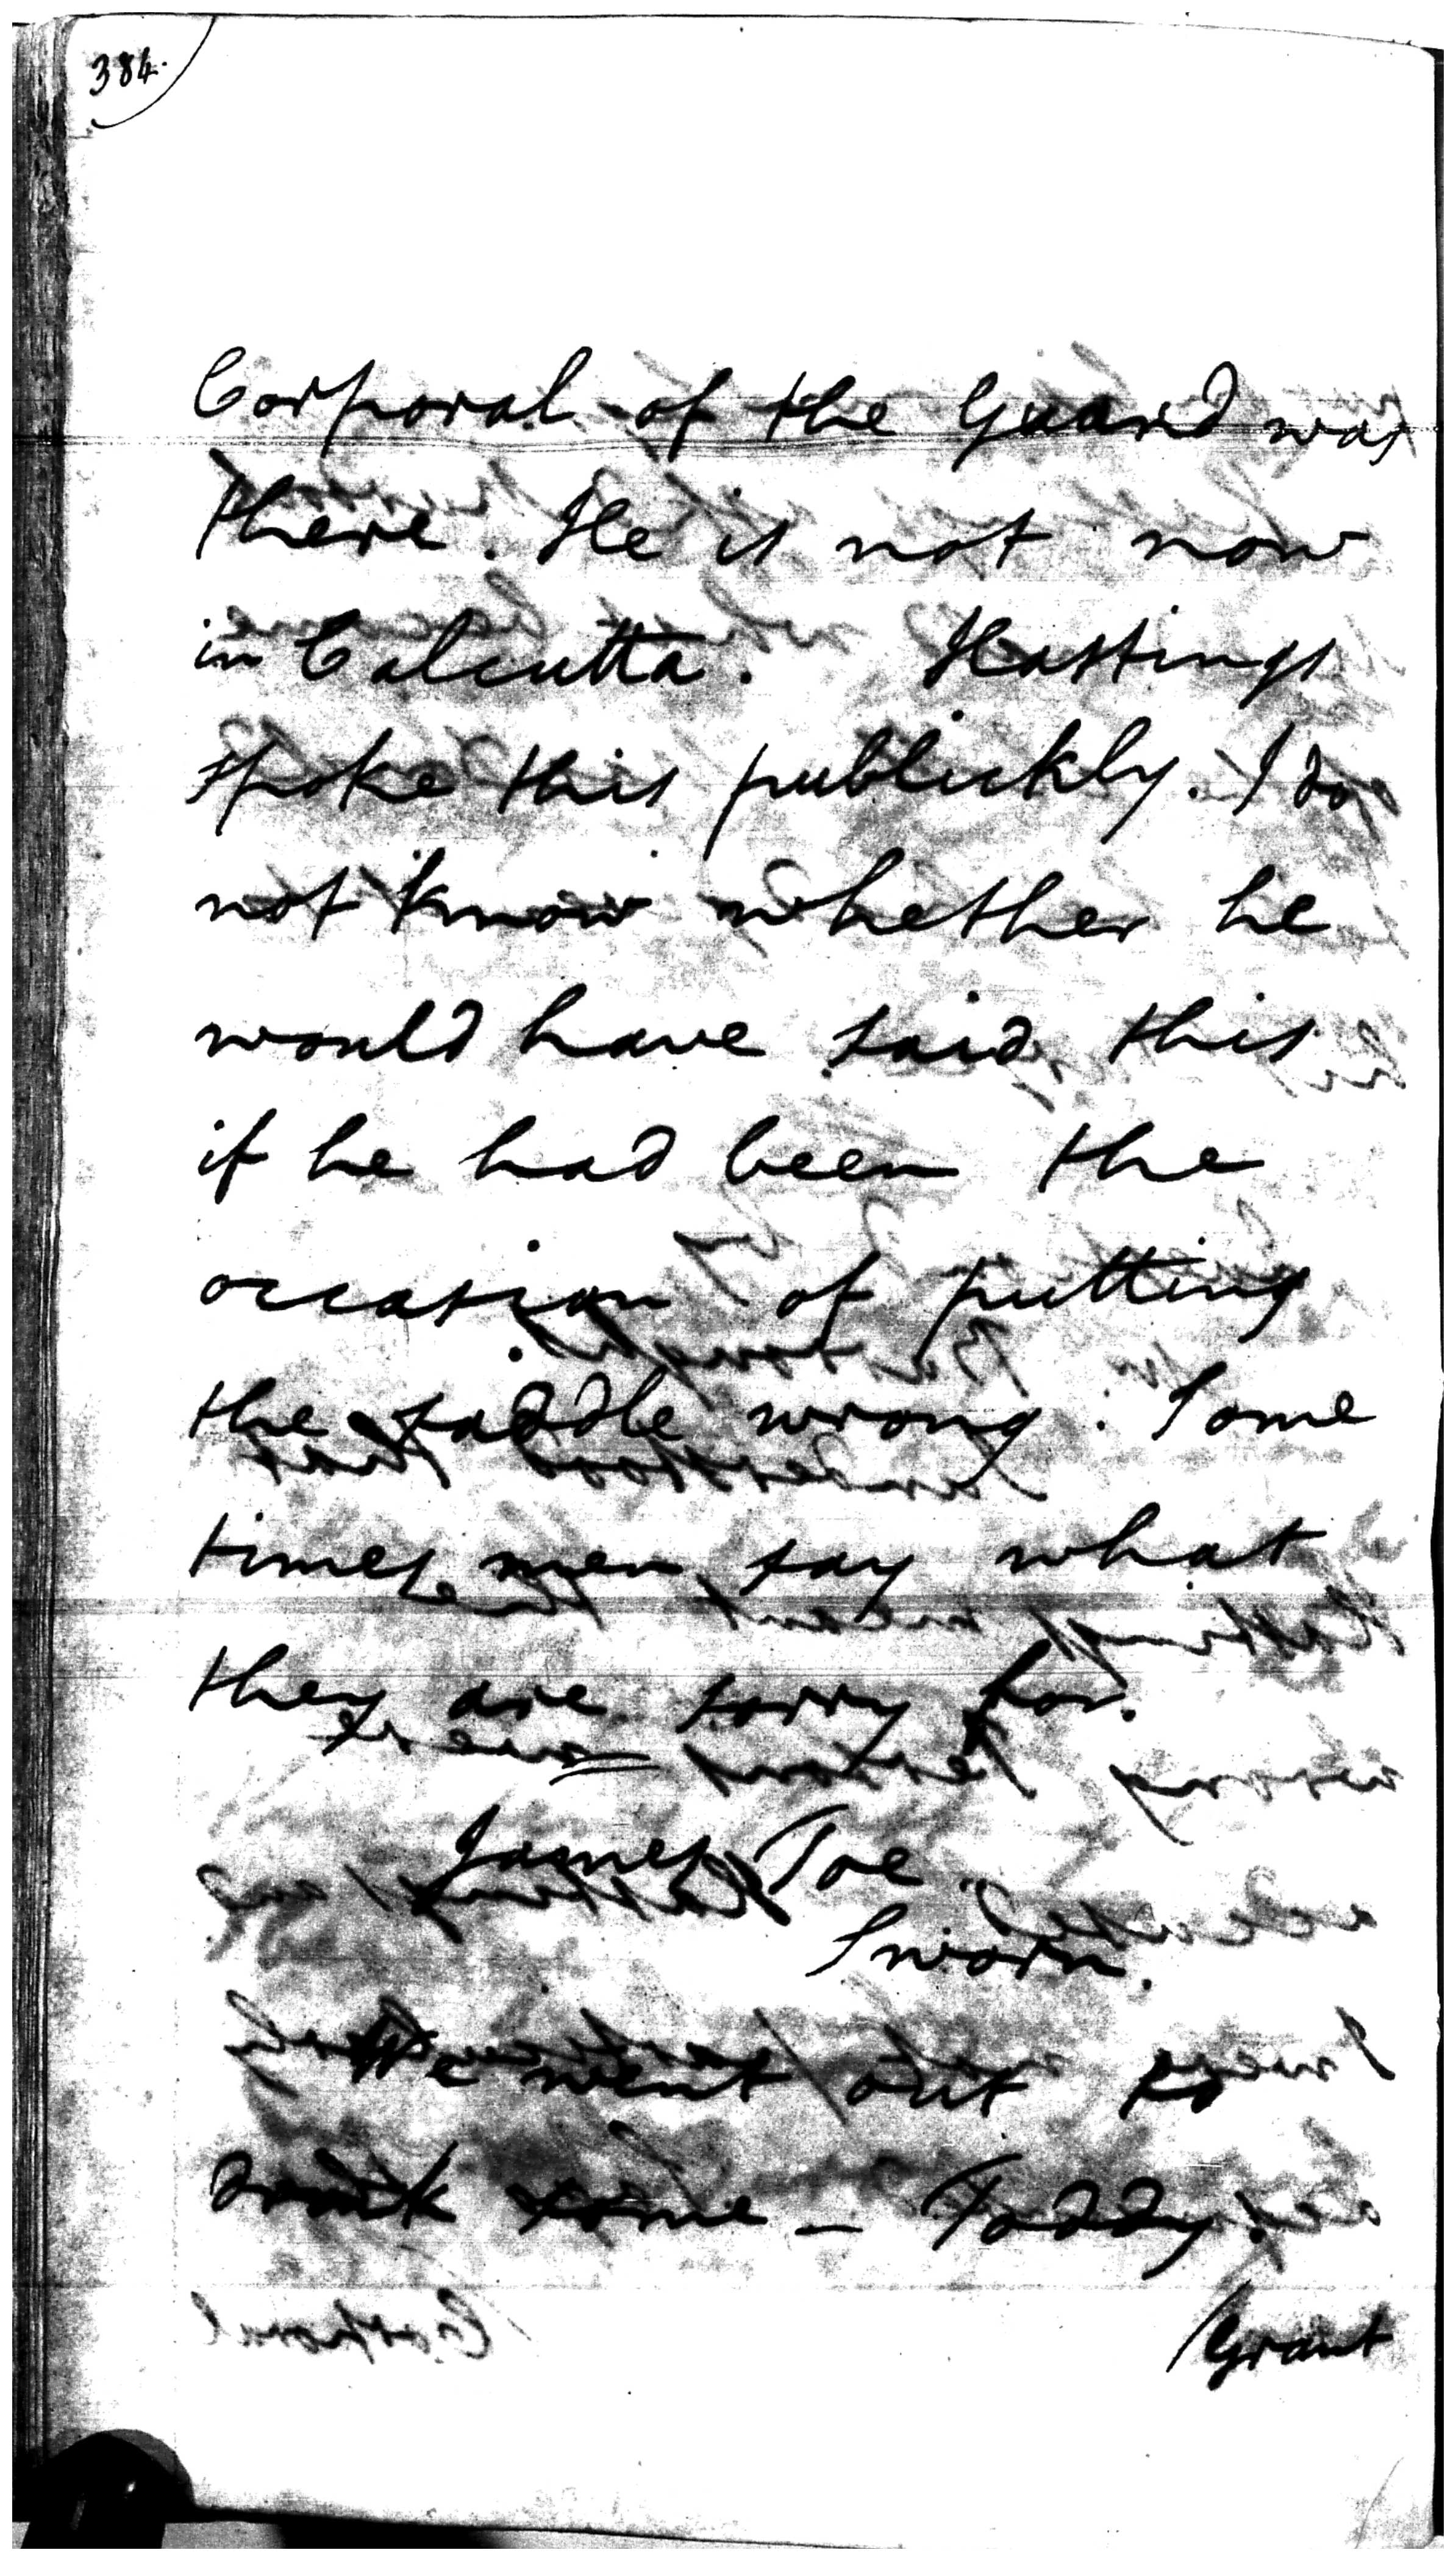 384.
Corporal of the Guard was
there. He is not now
in Calcutta. Hastings
spoke this publickly. I do
not know whether he
would have said this
if he had been the
occasion of putting
the saddle wrong. Some
times men say what
they are sorry for.
James Toe.
Sworn.
We went out to
drink some – Toddy.
Grant